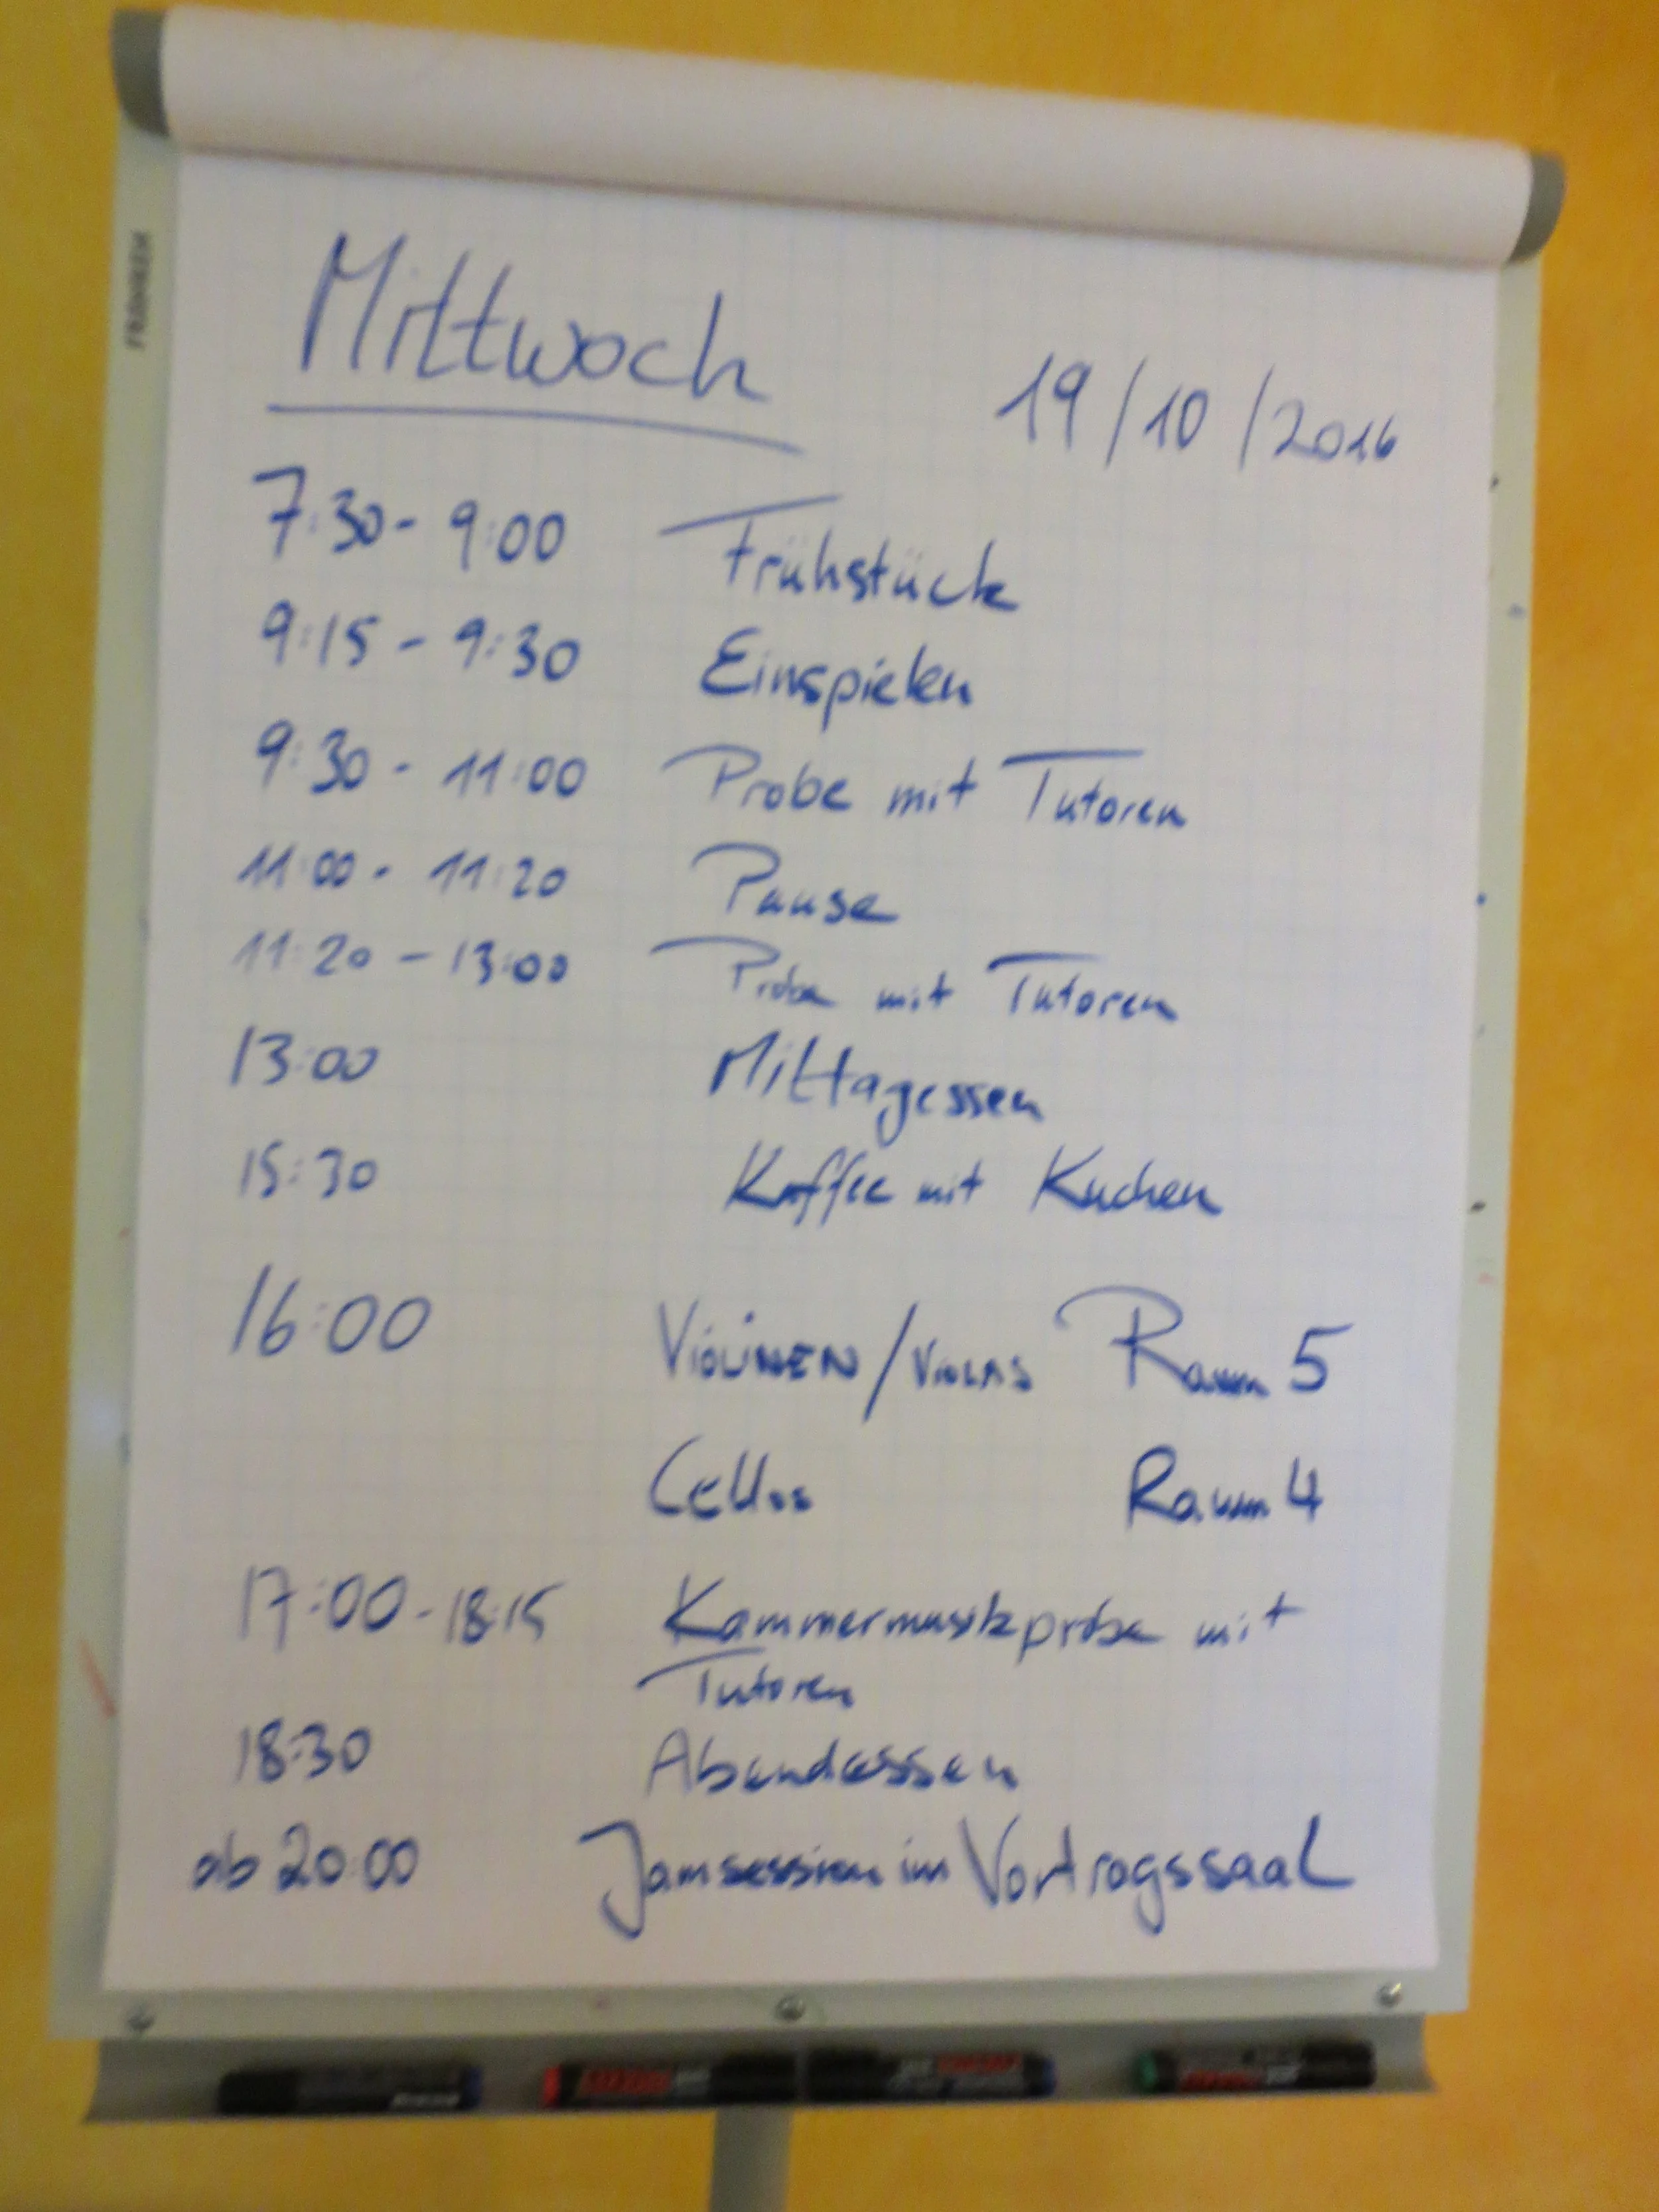 FRANKEN
Mittwoch 19/10/2016
7:30 - 9:00 Frühstück
9:15 - 9:30 Einspielen
9:30 - 11:00 Probe mit Tutoren
11:00 - 11:20 Pause
11:20 - 13:00 Probe mit Tutoren
13:00 Mittagessen
15:30 Kaffee mit Kuchen
16:00 VIOLINEN/VIOLAS Raum 5
Cellos Raum 4
17:00 - 18:15 Kammermusikprobe mit
Tutoren
18:30 Abendessen
ab 20:00 Jamsession im Vortragssaal